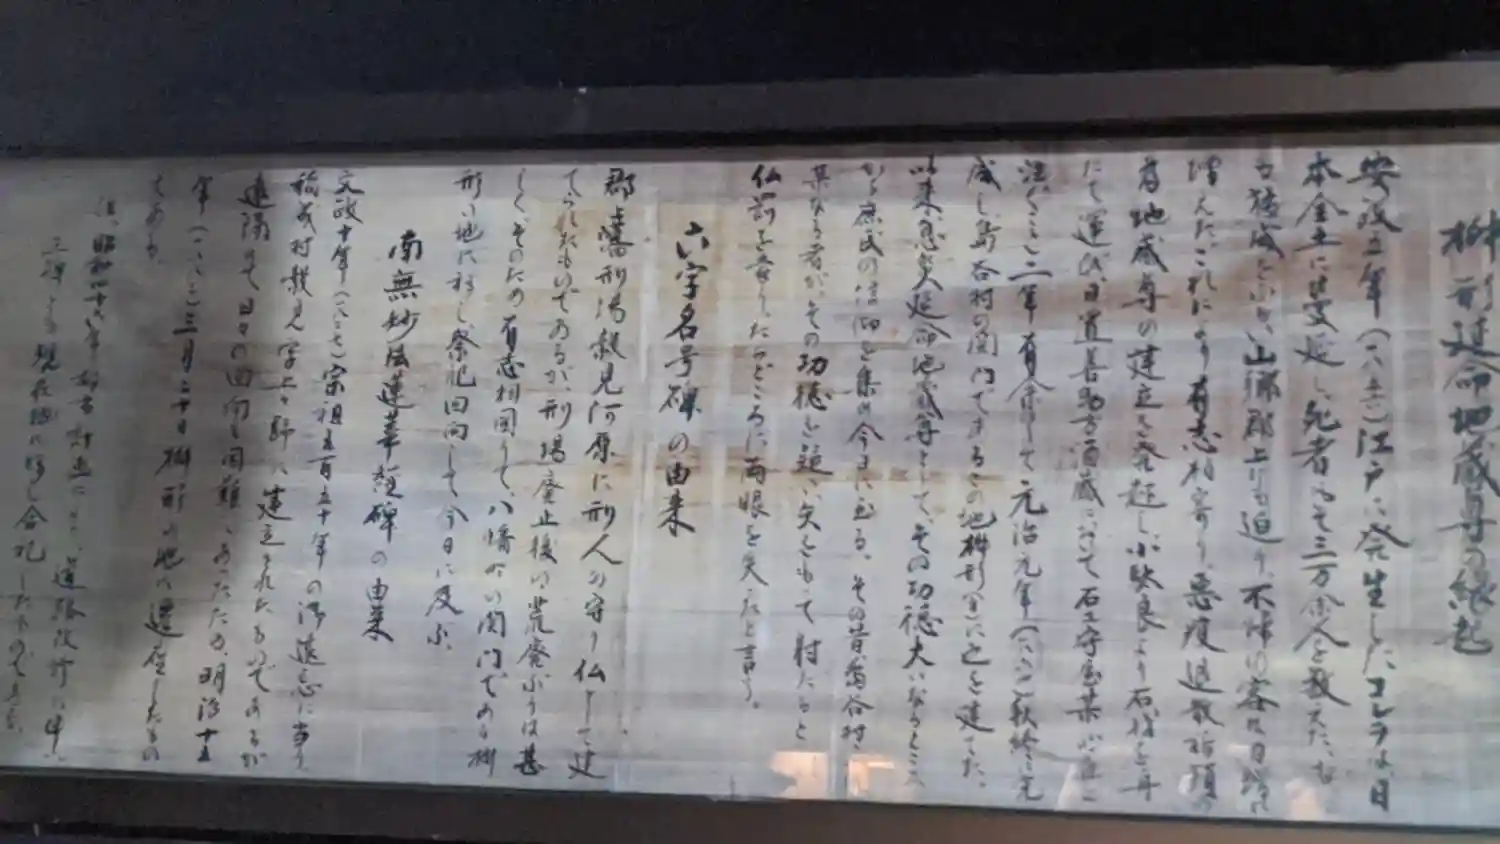 桝形延命地蔵尊の縁起
安政五年(一八五八)江戸に発生したコレラは、日
本全土に蔓延し、死者およそ三万余人と数えた。な
お猛威をふるい、山郷郡上にも迫り、不怖の害は日増に
増えた。これにより有志相寄り、悪疫退散祈願の
為、地蔵尊の建立を発起し、小駄良より石材を舟
にて運び、日置善助方酒蔵において石工守屋某が
注ぐこと二年有余にして元治元年(一八六四)秋終に完
成し、島谷村の関門であるこの地桝形に之を建てた。
以来、息災延命地蔵尊として、その功徳大いなるところ
から庶民の信仰を集め今日に至る。その昔島谷村
某なる者が、その功徳を疑い矢をもって射たると
仏罰を蒙りたちどころに両眼を失ったと言う。
六字名号碑の由来
郡上藩刑場穀見河原に刑人の守り仏として建
てられたものであるが刑場廃止後の荒廃ぶりは甚
しく、そのため有志相図りて、八幡の関門である桝
形の地に移し祭祀回向して今日に及ぶ。
南無妙法蓮華経碑の由来
文政十年(一八二七)宗祖五百五十年の御遠忌に当り、
稲成村穀見字上ヶ野に建立されたものであるが
遠隔にて日々の回向も困難であったため、明治十五
年(一八八二)三月二十日桝形の地に遷座したもの
である。
注、昭和四十八年都市計画による道路改修に伴い
三碑とも現在地に移し合祀したものである。